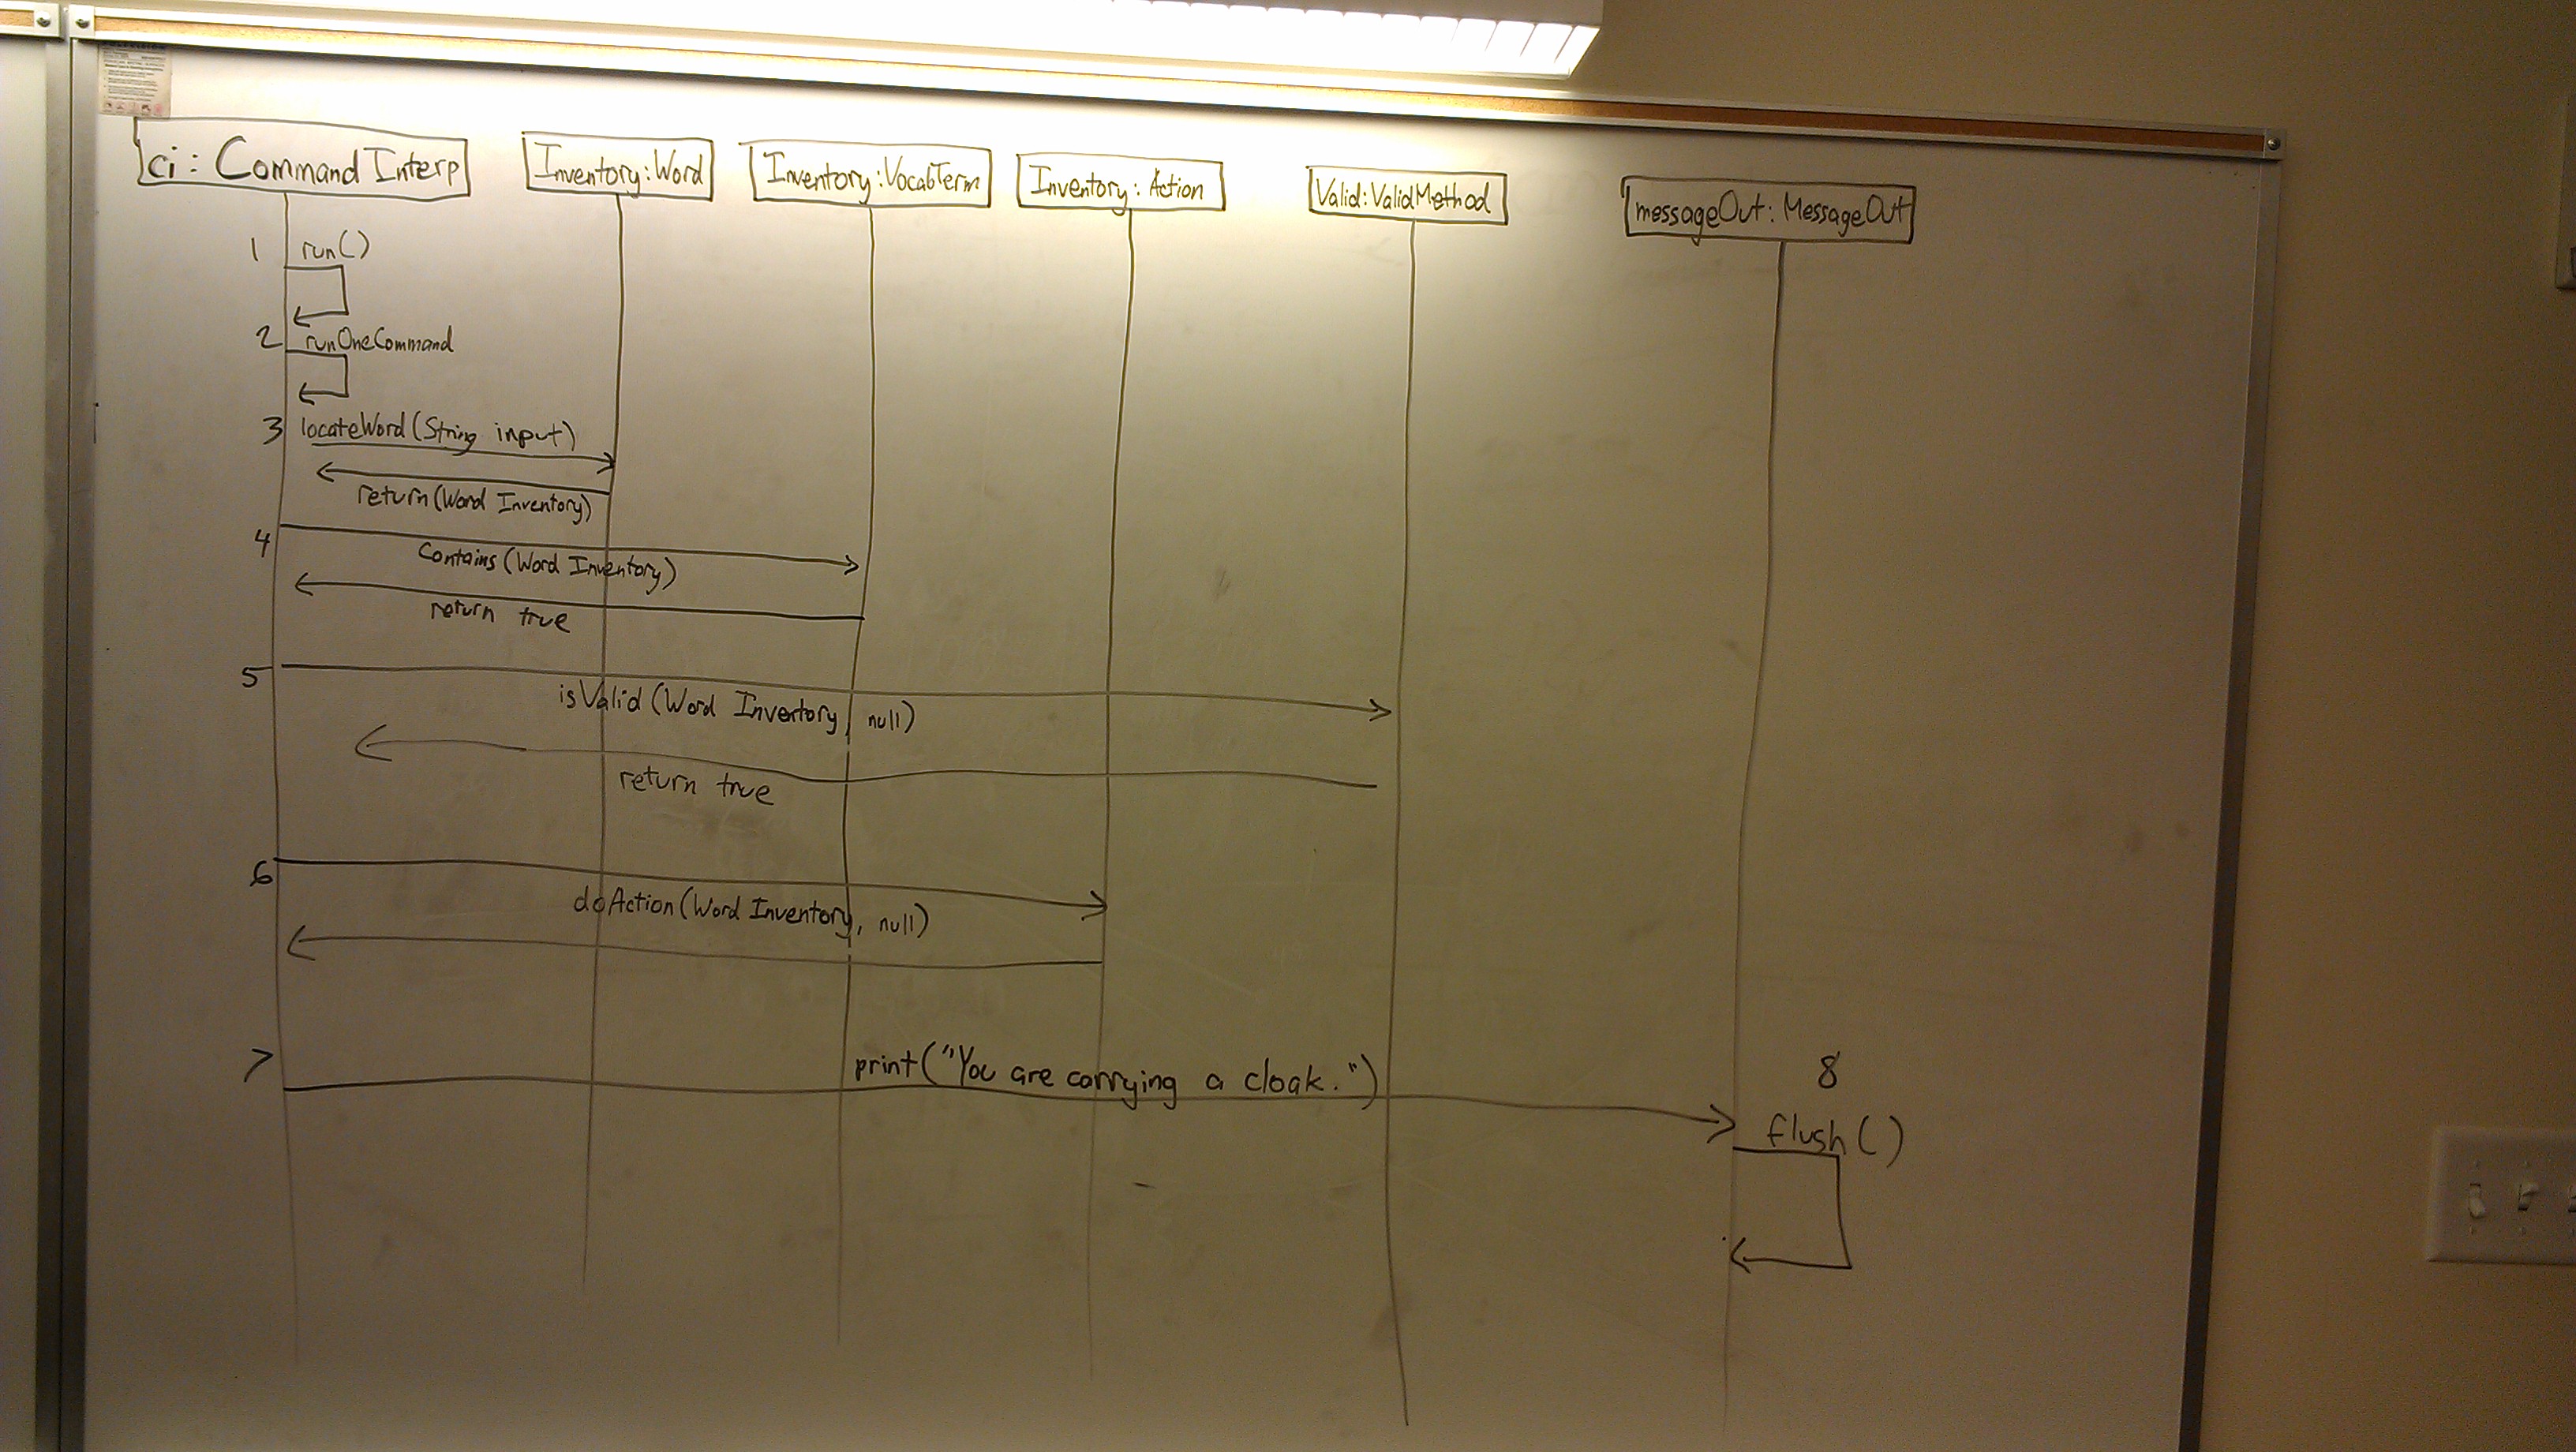 ci: CommandInterp
Inventory:Word
Inventory:VocabTerm
Inventory: Action
Valid:ValidMethod
messageOut: MessageOut
1 run()
2 runOneCommand
3 locateWord(String input)
return(Word Inventory)
4
Contains(Word Inventory)
return true
5
isValid(Word Inventory, null)
return true
6
doAction(Word Inventory, null)
7 print("You are carrying a cloak.")
8
flush()